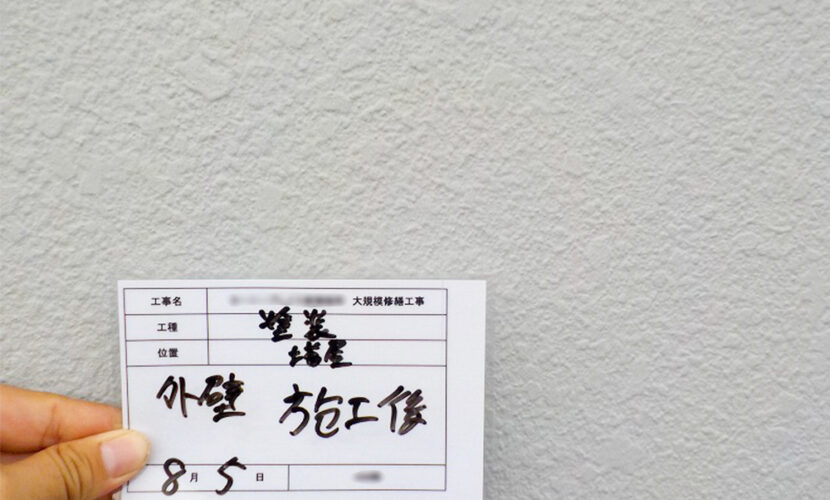 工事名 大規模修繕工事
工種 塗装
位置 塔屋
外壁 施工後
8月5日